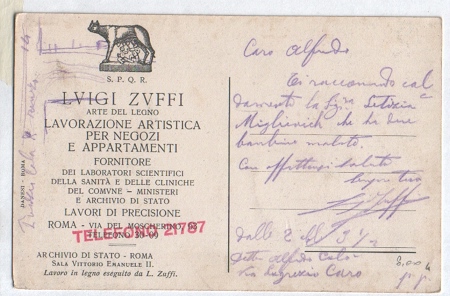 S. P. Q. R.
LVIGI ZVFFI
ARTE DEL LEGNO
LAVORAZIONE ARTISTICA
PER NEGOZI
E APPARTAMENTI
FORNITORE
DEI LABORATORI SCIENTIFICI
DELLA SANITÀ E DELLE CLINICHE
DEL COMVNE - MINISTERI
E ARCHIVIO DI STATO
LAVORI DI PRECISIONE
ROMA - VIA DEL MOSCHERINO
TELEFONO 21787
TELEFONO
ARCHIVIO DI STATO - ROMA
SALA VITTORIO EMANUELE II.
Lavoro in legno eseguito da L. Zuffi.
DANESI - ROMA
Caro Alfredo
Ti raccomando cal
damente la Letizia
Miglievich che ha due
bambine
Con affettuosi saluti
LZuffi
dalle 2 alle 3½
Alfredo
Via Lugrezio Caro
2.00